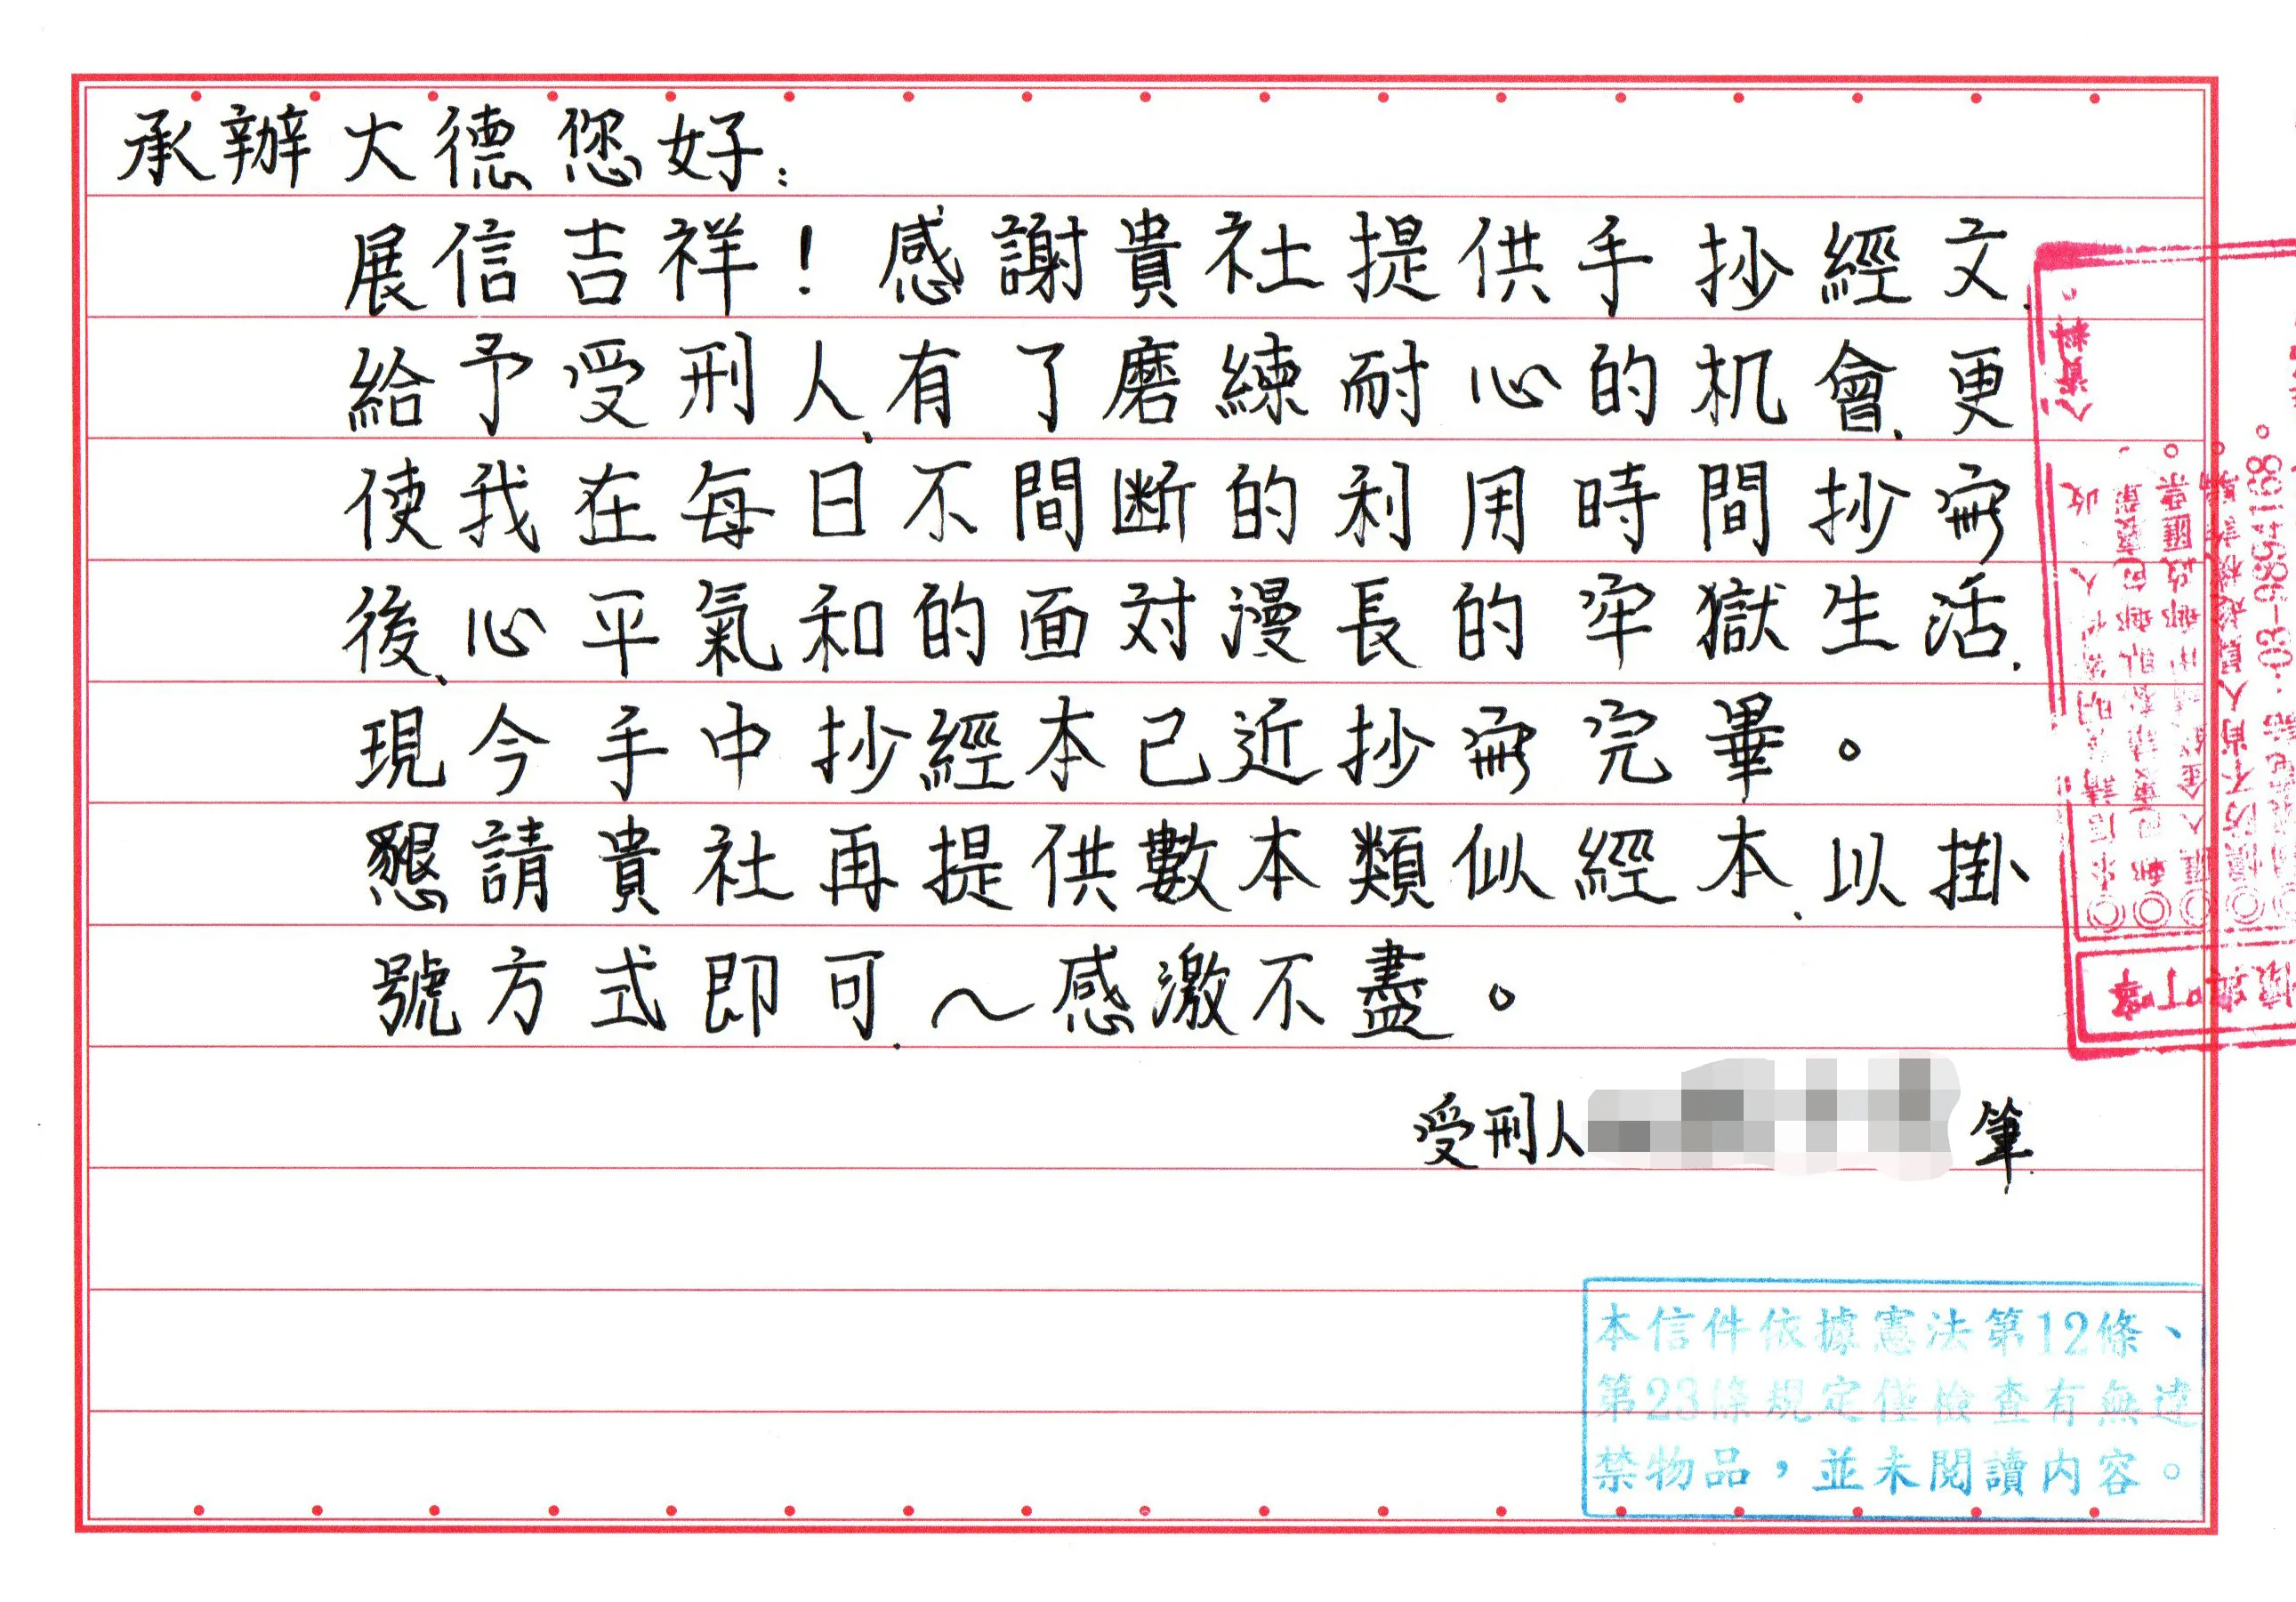 承辦大德您好：
展信吉祥！感謝貴社提供手抄經文，
給予受刑人，有了磨練耐心的机會，更
使我在每日不間断的利用時間抄寫
後，心平氣和的面对漫長的牢獄生活，
現今手中抄經本已近抄寫完畢。
懇請貴社再提供數本類似經本，以掛
號方式即可，～感激不盡。
受刑人
筆
本信件依據憲法第12條、
第23條規定僅檢查有無違
禁物品，並未閱讀內容。
03-9894158。